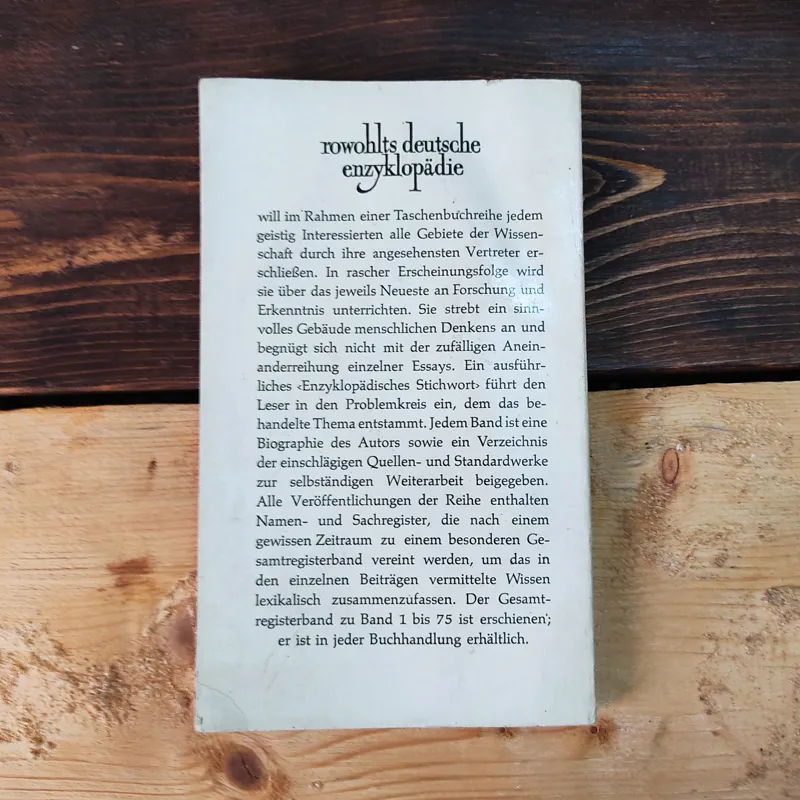 rowohlts deutsche
enzyklopädie
will im Rahmen einer Taschenbuchreihe jedem
geistig Interessierten alle Gebiete der Wissen-
schaft durch ihre angesehensten Vertreter er-
schließen. In rascher Erscheinungsfolge wird
sie über das jeweils Neueste an Forschung und
Erkenntnis unterrichten. Sie strebt ein sinn-
volles Gebäude menschlichen Denkens an und
begnügt sich nicht mit der zufälligen Anein-
anderreihung einzelner Essays. Ein ausführ-
liches ‹Enzyklopädisches Stichwort› führt den
Leser in den Problemkreis ein, dem das be-
handelte Thema entstammt. Jedem Band ist eine
Biographie des Autors sowie ein Verzeichnis
der einschlägigen Quellen- und Standardwerke
zur selbständigen Weiterarbeit beigegeben.
Alle Veröffentlichungen der Reihe enthalten
Namen- und Sachregister, die nach einem
gewissen Zeitraum zu einem besonderen Ge-
samtregisterband vereint werden, um das in
den einzelnen Beiträgen vermittelte Wissen
lexikalisch zusammenzufassen. Der Gesamt-
registerband zu Band 1 bis 75 ist erschienen;
er ist in jeder Buchhandlung erhältlich.